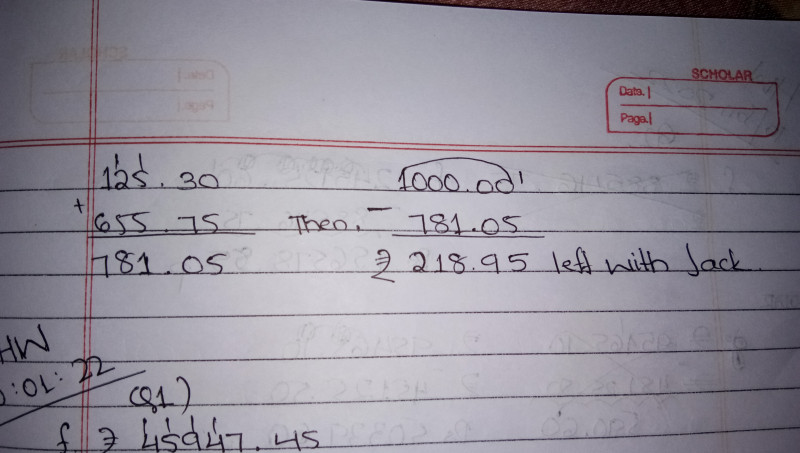 SCHOLAR
Date.|
Page.|
125.30 1000.00
+ 655.75 Then, - 781.05
781.05 ₹ 218.95 left with Jack.
HW
:01:22
(Q1)
f. ₹ 45947.45